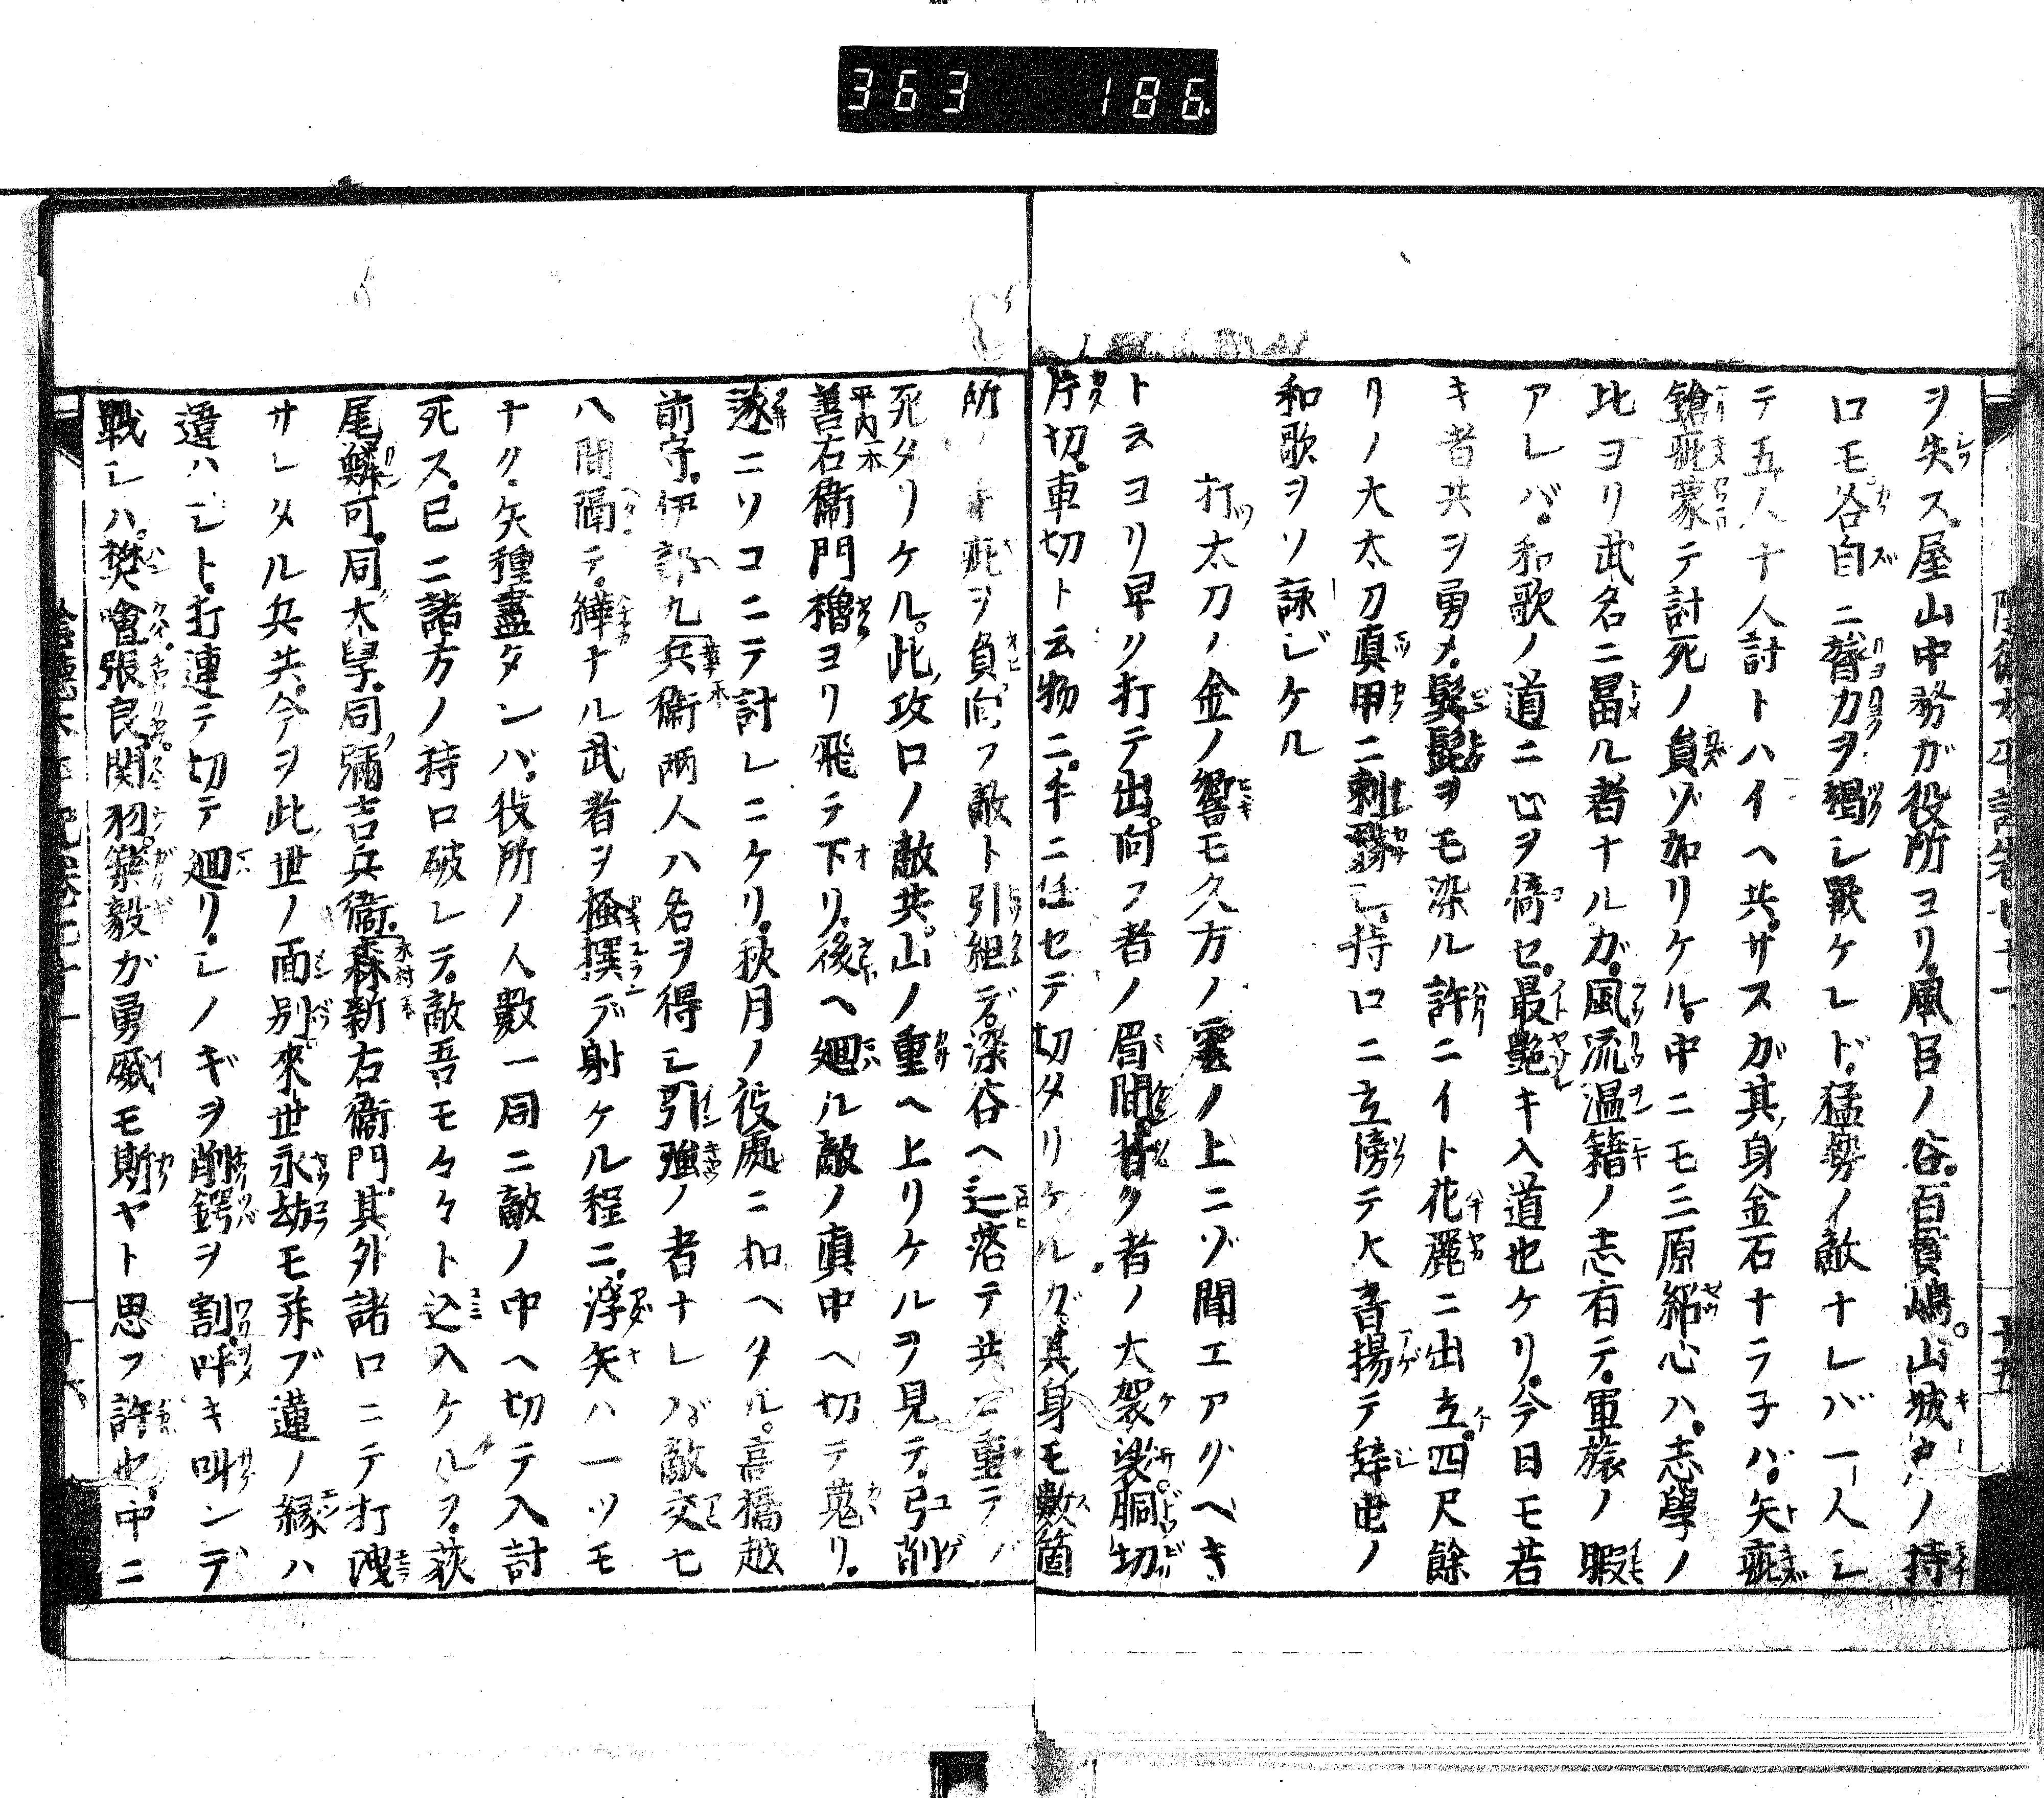 363 186.
ヲ失ス。屋山中務ガ役所ヨリ。風呂ノ谷。百貫嶋。山城戸ノ持
口モ各自ニ膂力ヲ竭シ戰ケレド。猛勢ノ敵ナレバ一人シ
テ五人十人討トハイヘ共。サスガ其身金石ナラ子バ。矢疵
鎗疵蒙テ討死ノ員ゾ加リケル。中ニモ三原紹心ハ。志學ノ
比ヨリ武名ニ冨ル者ナルガ。風流温籍ノ志有テ。軍旅ノ暇
アレバ。和歌ノ道ニ心ヲ倚セ。最艶キ入道也ケリ。今日モ若
キ者共ヲ勇メ。鬂髭ヲモ染ル許ニイト花麗ニ出立。四尺餘
リノ大太刀真甲ニ刺翳シ。持口ニ立傍テ大音揚テ辞世ノ
和歌ヲソ詠ジケル
打太刀ノ金ノ響モ久方ノ雲ノ上ニゾ聞エアクヘキ
ト云ヨリ早ク打テ出。向フ者ノ眉間。背ク者ノ大袈裟。胴切
片切。車切ト云物ニ。手ニ任セテ切タリケルガ。其身モ數箇
所ノ疵ヲ負。向フ敵ト引組デ深谷ヘ落テ共ニ重テ
死タリケル。此攻口ノ敵共。山ノ重ヘ上リケルヲ見テ。弓削
善右衞門櫓ヨリ飛テ下リ。後ヘ廻ル敵ノ真中ヘ切テ蒐リ。
平内一本
遂ニソコニテ討レニケリ。秋月ノ役處ニ扣ヘタル。高橋越
前守。伊部九兵衞兩人ハ名ヲ得シ引強ノ者ナレバ敵交モ
八間隔テ。繟ナル武者ヲ掻撰デ射ケル程ニ。浮矢ハ一ツモ
ナク。矢種盡タンバ。役所ノ人數一同ニ敵ノ中ヘ切テ入討
死ス。已ニ諸方ノ持口破レテ。敵吾モ々々ト込入ケルヲ。萩
尾鱗可。同大學。同彌吉兵衞。森新右衞門。其外諸口ニテ打洩
サレタル兵共。今ヲ此世ノ面別來世永劫モ并ブ蓮ノ縁ハ
違ハシト。打連テ切テ廻リ。シノギヲ削鍔ヲ割。呼キ叫ンデ
戰シハ。樊噲張良関羽。樂毅ガ勇威モ斯ヤト思フ許也。中ニ